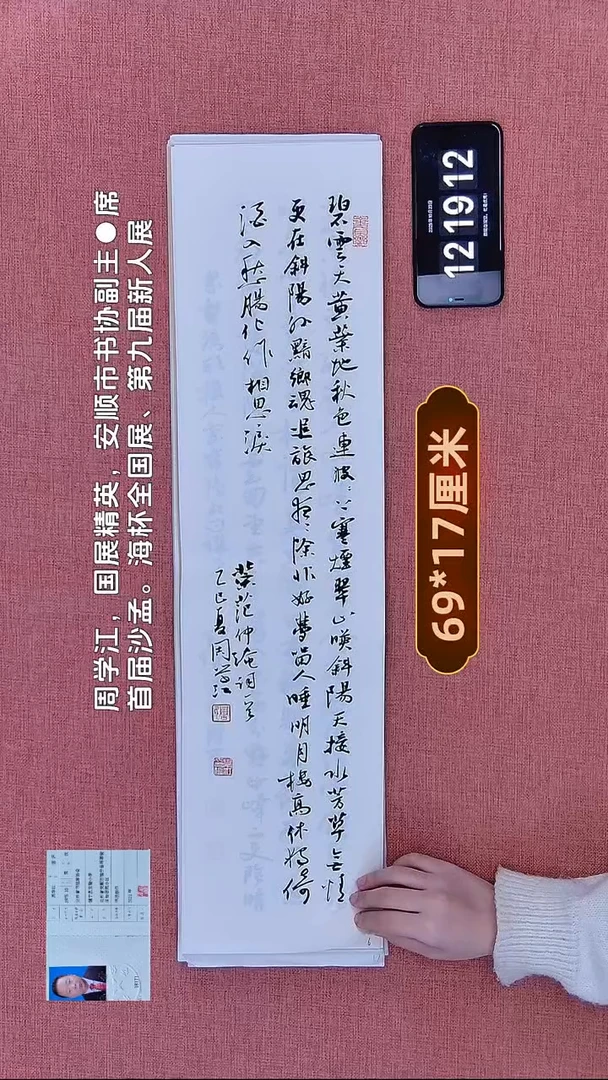 周学江，国展精英，安顺市书协副主●席
首届沙孟。海杯全国展、第九届新人展
碧雲天黄葉地秋色連波〻上寒煙翠山暎斜陽天接水芳草無情
更在斜陽外黯鄉魂追旅思夜〻除非好夢留人睡明月樓高休獨倚
酒入愁腸化作相思淚
范仲淹詞
乙巳夏周學江
12 19 12
69*17厘米